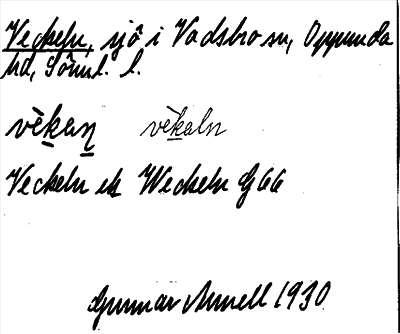 Veckeln, sjö i Vadsbro sn, Oppunda
hd, Sörml. l.
vèkaṉ vèkaln
Veckeln ek Weckeln G66
Gunnar Annell 1930